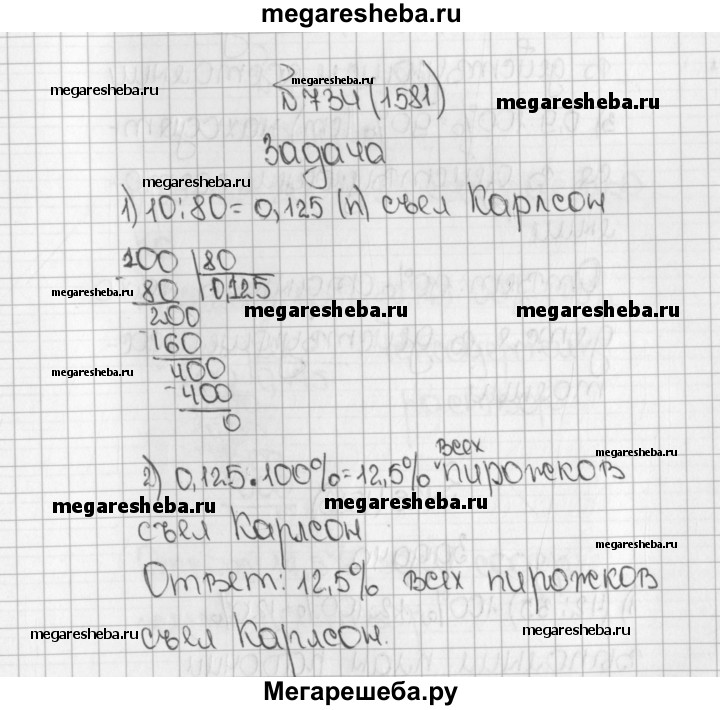 megaresheba.ru
megaresheba.ru
№734(1581)
megaresheba.ru
megaresheba.ru
Задача
megaresheba.ru
1) 10:80=0,125 (п) съел Карлсон
100 80
80 0,125
megaresheba.ru
200
megaresheba.ru
megaresheba.ru
160
400
megaresheba.ru
400
0
всех
megaresheba.ru
2) 0,125·100%=12,5% пирожков
megaresheba.ru
megaresheba.ru
съел Карлсон
megaresheba.ru
Ответ: 12,5% всех пирожков
megaresheba.ru
съел Карлсон.
megaresheba.ru
Мегарешеба.ру